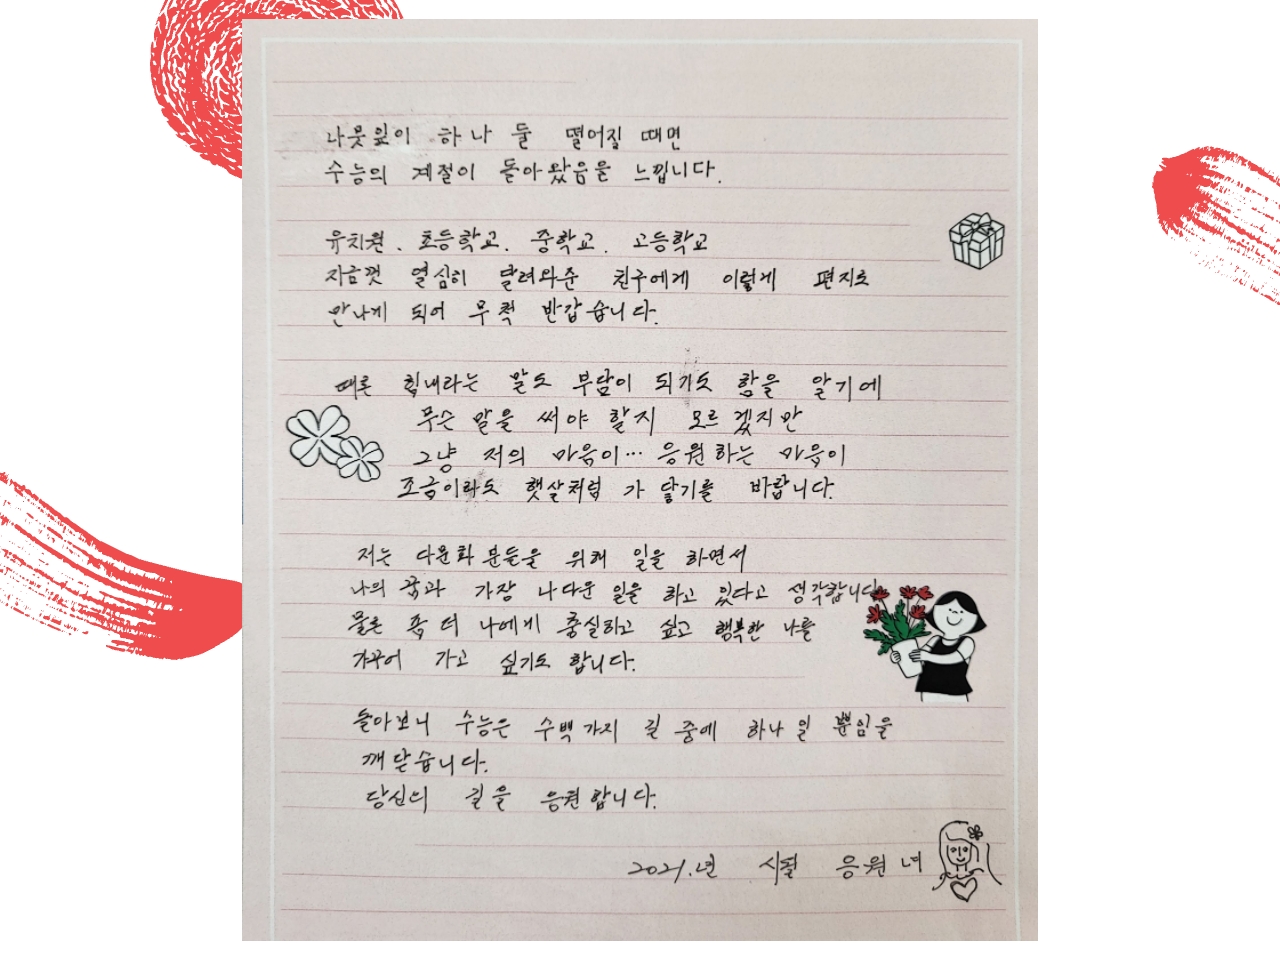 나뭇잎이 하나 둘 떨어질 때면
수능의 계절이 돌아왔음을 느낍니다.
유치원. 초등학교. 중학교. 고등학교
지금껏 열심히 달려와준 친구에게 이렇게 편지로
만나게 되어 무척 반갑습니다.
때론 힘내라는 말도 부담이 되기도 함을 알기에
무슨 말을 써야 할지 모르겠지만
그냥 저의 마음이… 응원하는 마음이
조금이라도 햇살처럼 가 닿기를 바랍니다.
저는 다문화 분들을 위해 일을 하면서
나의 꿈과 가장 나다운 일을 하고 있다고 생각합니다.
물론 좀 더 나에게 충실하고 싶고 행복한 나를
가꾸어 가고 싶기도 합니다.
돌아보니 수능은 수백가지 길 중에 하나일 뿐임을
깨닫습니다.
당신의 길을 응원합니다.
2021.년 시월 응원녀